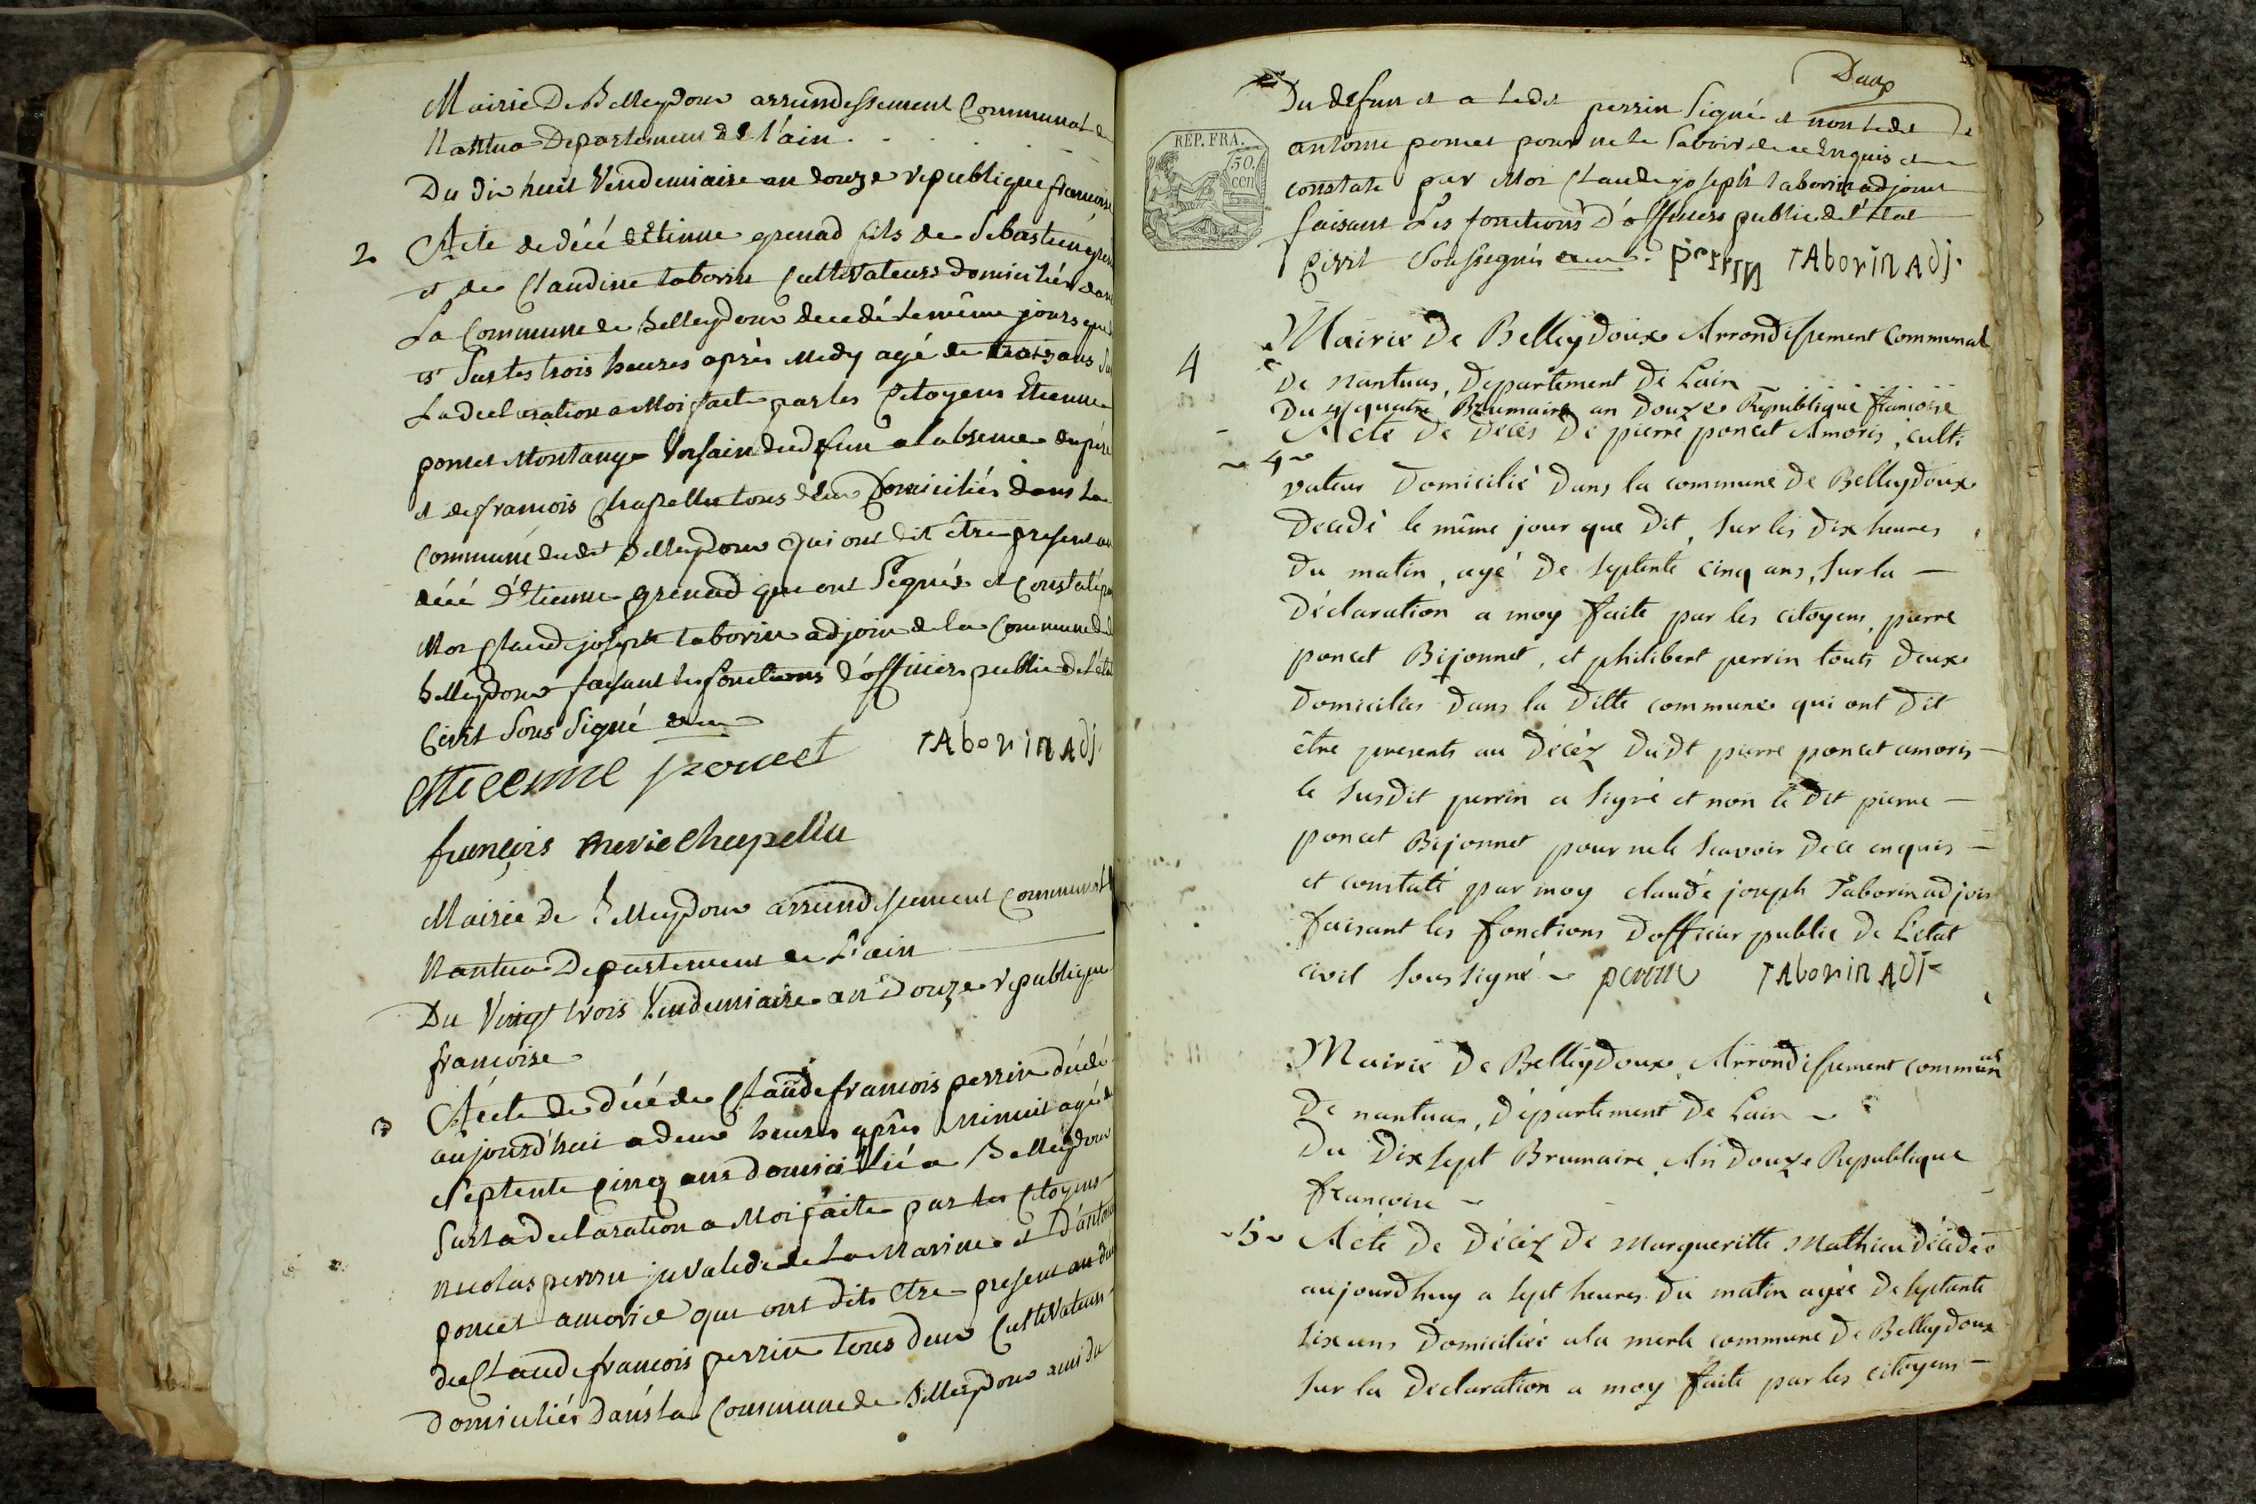 Mairie De Belleydoux arrundessement Communal de
Nantua Departement de l'ain
Du dix huit Vendemiaire an douze republique francoise
2 Acte de décé d'Etienne grenad fils de Sebastien
et de Claudine taborin Cultivateurs domiciliés dans
La Commune de belleydoux decedé le même jours que
et Sur les trois heures après Midy agé de trois ans Sur
La declaration a Moi faite par les Citoyens Etienne
poncet Montange Voisain du defun a l'absence du père
et de francois Chapellu tous deux Domiciliés dans la
Commune dudit Belleydoux qui ont dit être present au
décé d'Etienne grenad que ont Signés et Constaté par
Moi Claude joseph taborin adjoin de la Commune de
belleydoux faisant les fonctions d'officiers public de l'état
Civil Sous Signé
etticenne poncet TAborin Adj.
françois marie chapellu
Mairie de Belleydoux arrundissement Communal de
Nantua Departement de L'ain
Du Vingt trois Vendemiaire an Douze republique
francoise
3 Acte de décé de Claude francois perrin décédé
aujourd'hui a deux heures après Minuit agé de
Septente Cinq ans domicilié a Belleydoux
Sur la declaration a Moi faite par les Citoyens
nicolas perrin jnvalide de La Marine et D'antoine
poncet amorice que ont dits Etre present au décé
de Claude francois perrin tous deux Cultivateurs
domiciliés dans la Commune de Belleydoux ami du
Deux
Du defun et a ledit perrin Signé et non ledit
REP. FRA.
50.
cen
antoine poncet pour ne le Savoir de ce Enquis et
constaté par Moi Claude joseph taborin adjoint
faisant Les fonctions D'officiers public de l'Etat
Civil Soussignés perrin TAborin Adj.
4 Mairie De Belleydoux Arrondissement Communal
De Nantua, Departement De Lain
Du 4 quatre Brumaire an Douze Republique francoise
Acte De Décès De pierre poncet Amoris, culti
~ 4 ~
vateur Domicilié Dans la commune De Belleydoux
Decedé le même jour que Dit, sur les Dix heures
Du matin, agé De septente cinq ans, sur la
Déclaration a moy faite par les citoyens, pierre
poncet Bijonnet, et philibert perrin touts Deux
Domiciliés Dans la Ditte commune qui ont Dit
être presents au Décéz Dudt pierre poncet amoris
le susdit perrin a signé et non le Dit pierre
poncet Bijonnet pour ne le scavoir De ce enquis
et constaté par moy claude joseph Taborin adjoin
faisant les fonctions D'officier public De L'etat
civil sous signé ~ perrin TAborin Adj
Mairie De Belleydoux Arrondissement commun
al
De nantua, Département De Lain ~
Du Dix sept Brumaire An Douze Republique
francoise ~
~ 5 ~ Acte De Décéz De Margueritte Mathieu Décédeé
aujourdhuy a sept heures Du matin ageé De septante
six ans Domiciliée a la commune De Belleydoux
sur la Declaration a moy faite par les citoyens